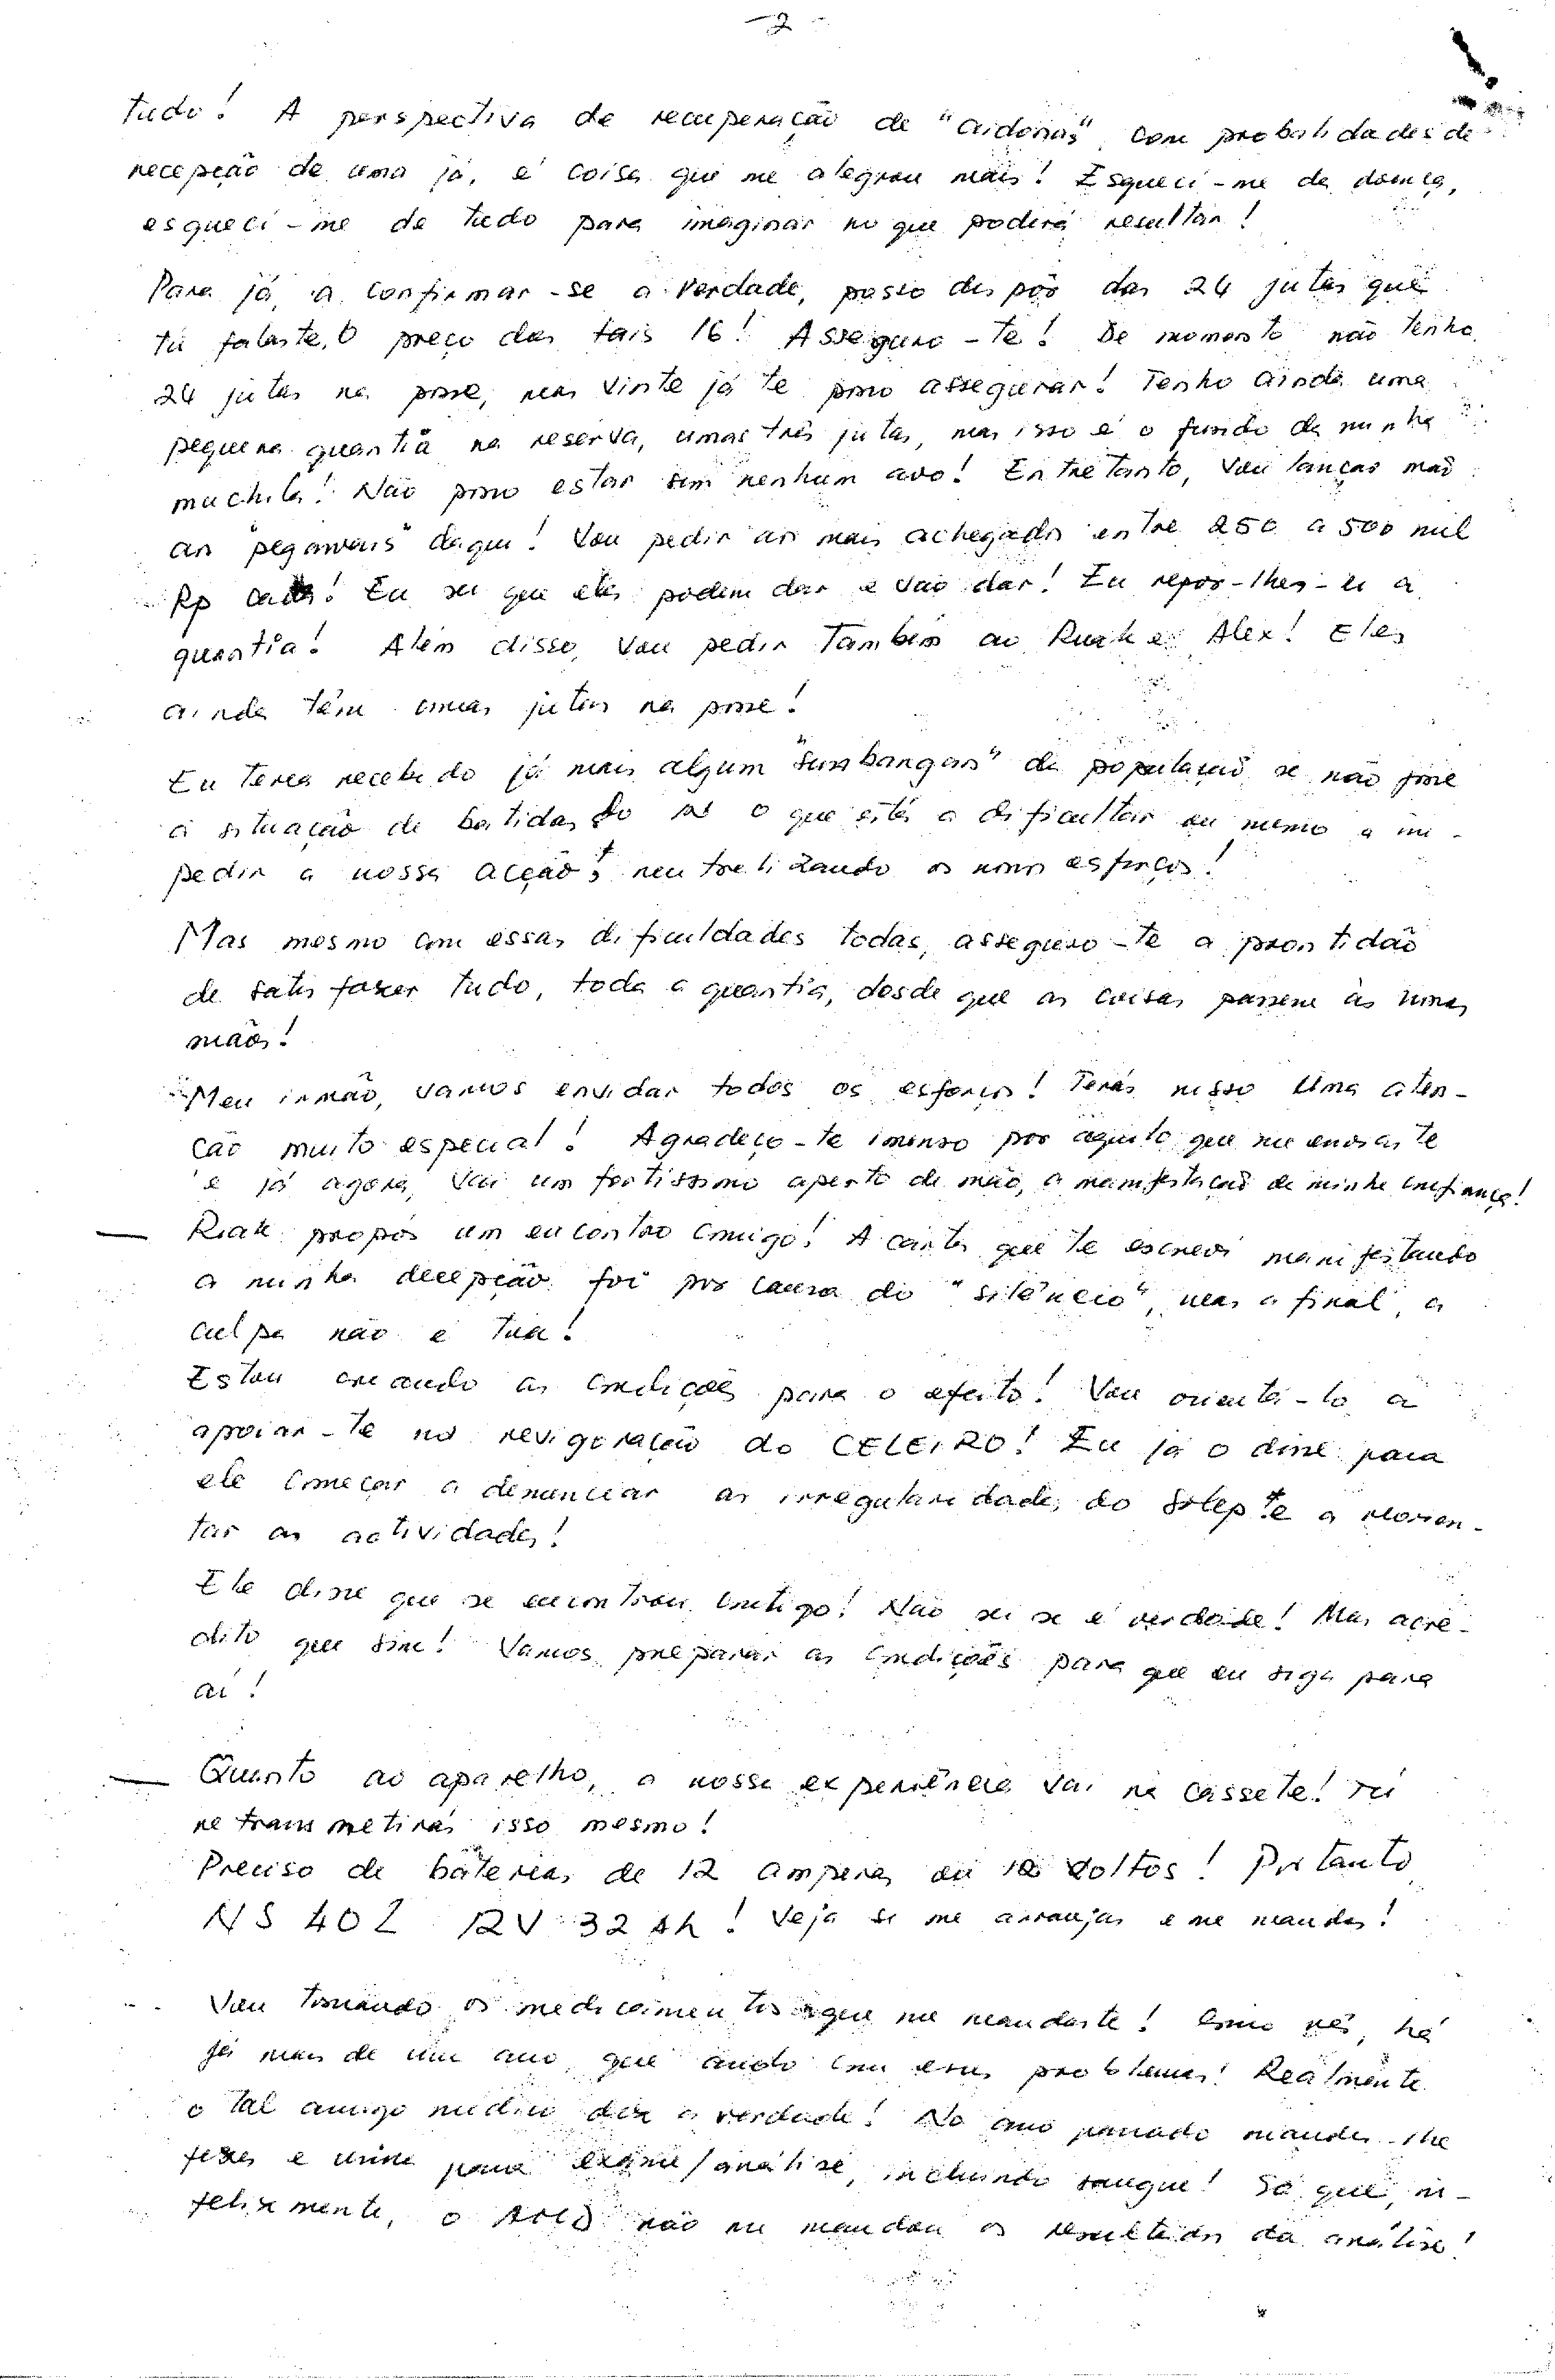 - 2 -
tudo! A perspectiva de recuperação de "aidonas" com probabilidades de
recepção de uma já, é coisa que me alegrou mais! Esqueci-me da doença,
esqueci-me de tudo para imaginar no que poderá resultar!
Para já, a confirmar-se a verdade, posso dispôr das 24 jutas que
tu falaste, o preço das tais 16! Asseguro-te! De momento não tenho
24 jutas na posse, mas vinte já te posso assegurar! Tenho ainda uma
pequena quantia na reserva, umas três jutas, mas isso é o fundo da minha
muchila! Não posso estar sem nenhum avo! Entretanto, vou lançar mão
aos "pegawais" daqui! Vou pedir aos mais achegados entre 250 a 500 mil
Rp cada! Eu sei que eles podem dar e vão dar! Eu repor-lhes-ei a
quantia! Além disso, vou pedir também ao Ruak e Alex! Eles
ainda têm umas jutas na posse!
Eu teria recebido já mais algum "sumbangan" da população se não fosse
a situação de batidas o que está a dificultar ou mesmo a im-
pedir a nossa acção, neutralizando os nossos esforços!
Mas mesmo com essas dificuldades todas, asseguro-te a prontidão
de satisfazer tudo, toda a quantia, desde que as coisas passem às nossas
mãos!
Meu irmão, vamos envidar todos os esforços! Terás nisso uma aten-
ção muito especial! Agradeço-te imenso por aquilo que me enviaste
e já agora, vai um fortíssimo aperto de mão, a manifestação de minha confiança!
— Ruak propôs um encontro comigo! A carta que te escrevi manifestando
a minha decepção foi por causa do "silêncio", mas afinal, a
culpa não é tua!
Estou criando as condições para o efeito! Vou orientá-lo a
apoiar-te na revigoração do CELEIRO! Eu já o disse para
ele começar a denunciar as irregularidades do e a reorien-
tar as actividades!
Ele disse que se encontrou contigo! Não sei se é verdade! Mas acre-
dito que sim! Vamos preparar as condições para que eu siga para
aí!
— Quanto ao aparelho, a nossa experiência vai na cassete! Tu
retransmetirás isso mesmo!
Preciso de baterias de 12 amperes ou 12 voltos! Portanto
NS 40Z 12V 32 Ah! Veja se me arranjas e me mandas!
Vou tomando os medicamentos que me mandaste! Como vês, há
já mais de um ano que ando com esses problemas! Realmente
o tal amigo médico diz a verdade! No ano passado mandei-lhe
fezes e urina para exame/análise, incluindo sangue! Só que, in-
felizmente, o não me mandou os resultados da análise!